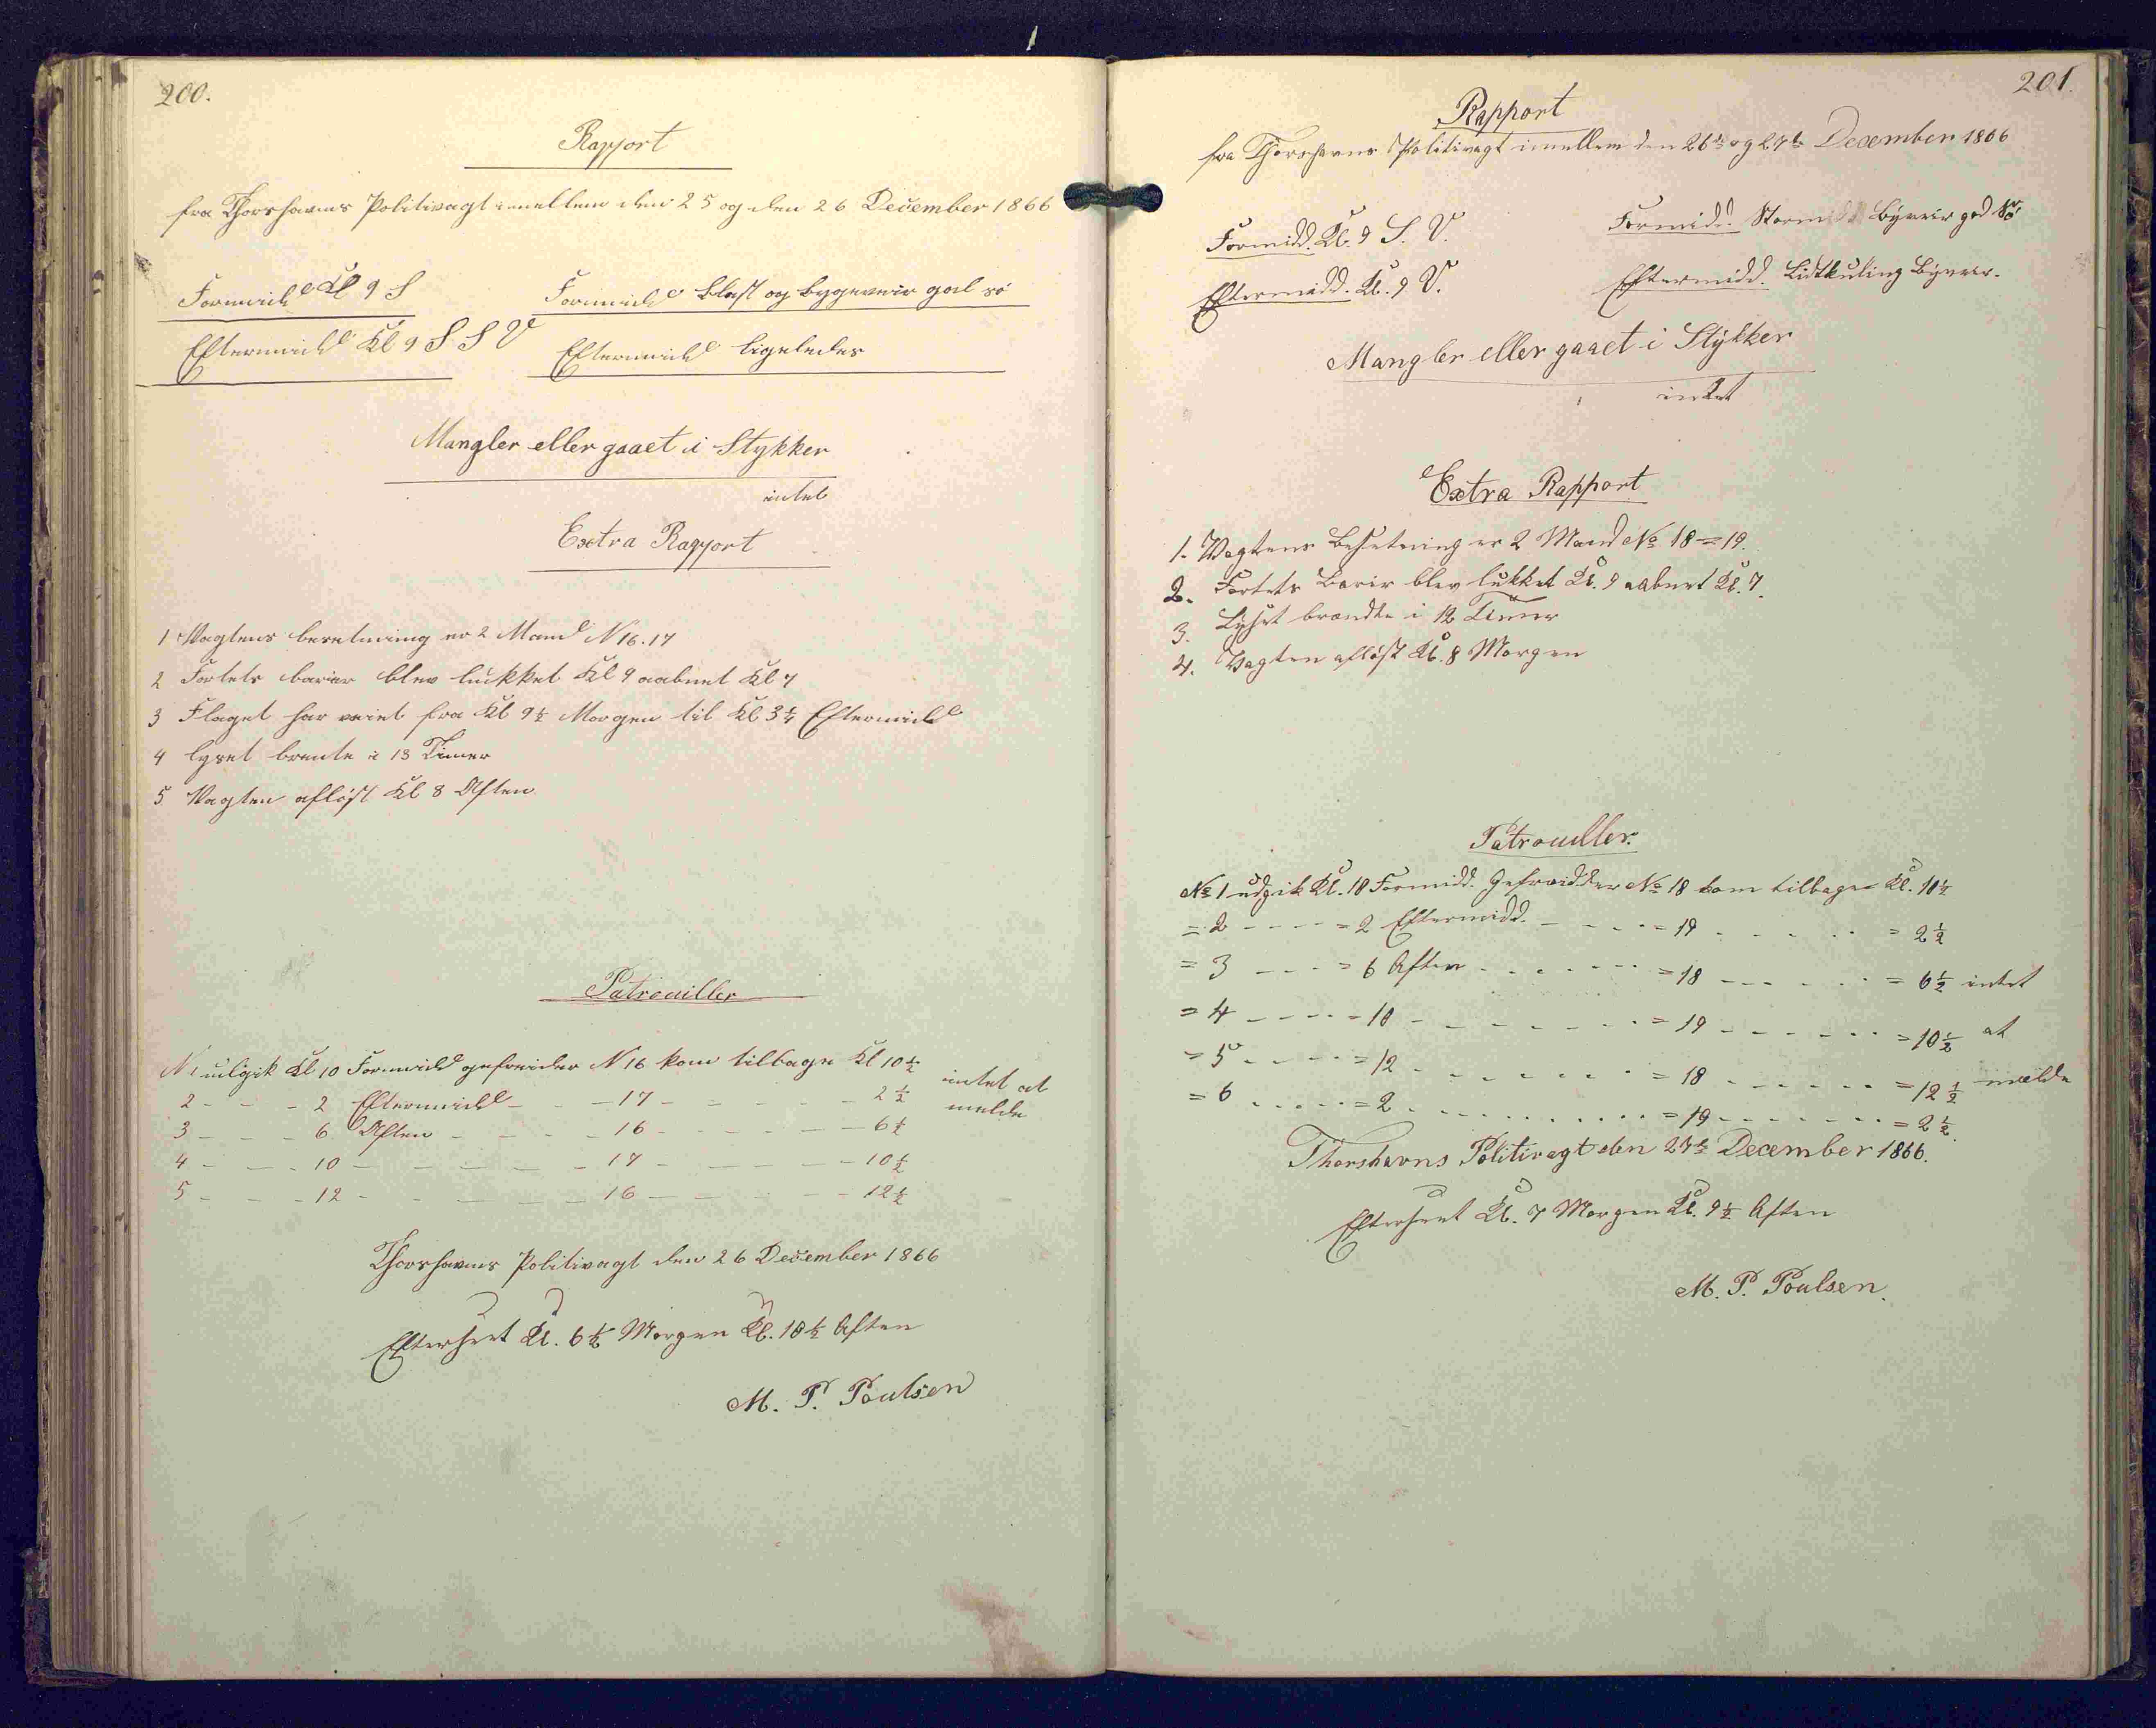 200.
Rapport
fra Thorshavns Politivagt imellem den 25 og den 26 December 1866
Formidd Kl 9 S
Formidd blæst og bygeveir gal sö
Eftermidd Kl 9 S S V
Eftermidd ligeledes
Mangler eller gaaet i Stykker
intet
Extra Rapport
1 Vagtens besetning er 2 Mand N 16. 17
2 Fortets barier blev lukket Kl 9 aabnet Kl 7
3 Flaget har veiet fra Kl 9½ Morgen til Kl 3¼ Eftermidd
4 lyset brente i 13 Timer
5 Vagten aflöst Kl 8 Aften
Patrouiller
N 1 udgik Kl 10 Formidd gefreider N 16 kom tilbage Kl 10½ intet at
2 - - - 2 Eftermidd - - - 17 - - - - - 2½ melde
3 - - - 6 Aften - - - - 16 - - - - - 6½
4 - - - 10 - - - - - - 17 - - - - - 10½
5 - - - 12 - - - - - - 16 - - - - - 12½
Thorshavns Politivagt den 26 December 1866
Efterseet Kl. 6½ Morgen Kl. 10½ Aften
M. P. Poulsen
201.
Rapport
fra Thorshavns Politivagt imellem den 26de og 27de December 1866
Formidd. Kl. 9 S. V.
Formidd. Storm Byveir god Sö
Eftermidd. Kl. 9 V.
Eftermidd. Lidt kuling Byveir.
Mangler eller gaaet i Stykker
intet
Extra Rapport
1. Vagtens Besetning er 2 Mand No 18 = 19.
2. Fortets Barir blev lukket Kl. 9 aabnet Kl. 7.
3. Lyset brændte i 12 Timer
4. Vagten aflöst Kl. 8 Morgen
Patrouiller.
No 1 udgik Kl. 10 Formidd. Gefreidder No 18 kom tilbage Kl. 10½
= 2 - - - - = 2 Eftermidd. - - - - = 19 - - - - - = 2½
= 3 - - - - = 6 Aften - - - - - = 18 - - - - - = 6½ intet
= 4 - - - - = 10 - - - - - - = 19 - - - - - = 10½ at
= 5 - - - - = 12 - - - - - - = 18 - - - - - = 12½ melde
= 6 - - - - = 2 - - - - - - = 19 - - - - - = 2½.
Thorshavns Politivagt den 27de December 1866.
Efterseet Kl. 7 Morgen Kl. 9½ Aften
M. P. Poulsen.